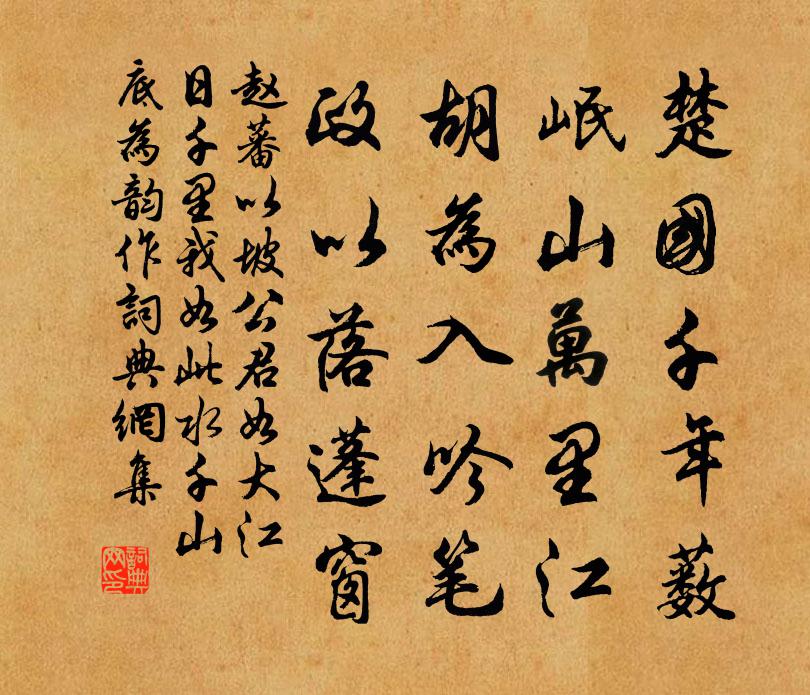 楚國千年薮
岷山萬里江
胡為入吟笔
政以落蓬窗
赵蕃以坡公君如大江
日千里我如此水千山
底為韵作詞典網集
詞典網印